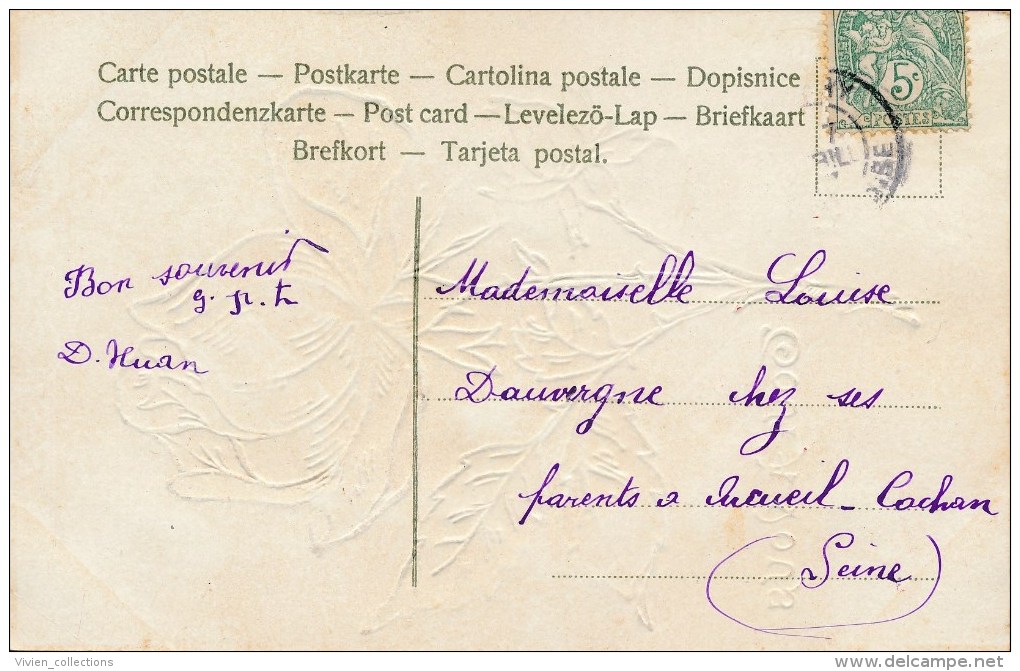 Carte postale — Postkarte — Cartolina postale — Dopisnice
Correspondenzkarte — Post card — Levelezö-Lap — Briefkaart
Brefkort — Tarjeta postal.
5c
POSTES
Bon souvenir
D. Huan
Mademoiselle Louise
Dauvergne chez ses
parents a Arcueil-Cachan
(Seine)
Vivien_collections
delcampe.net